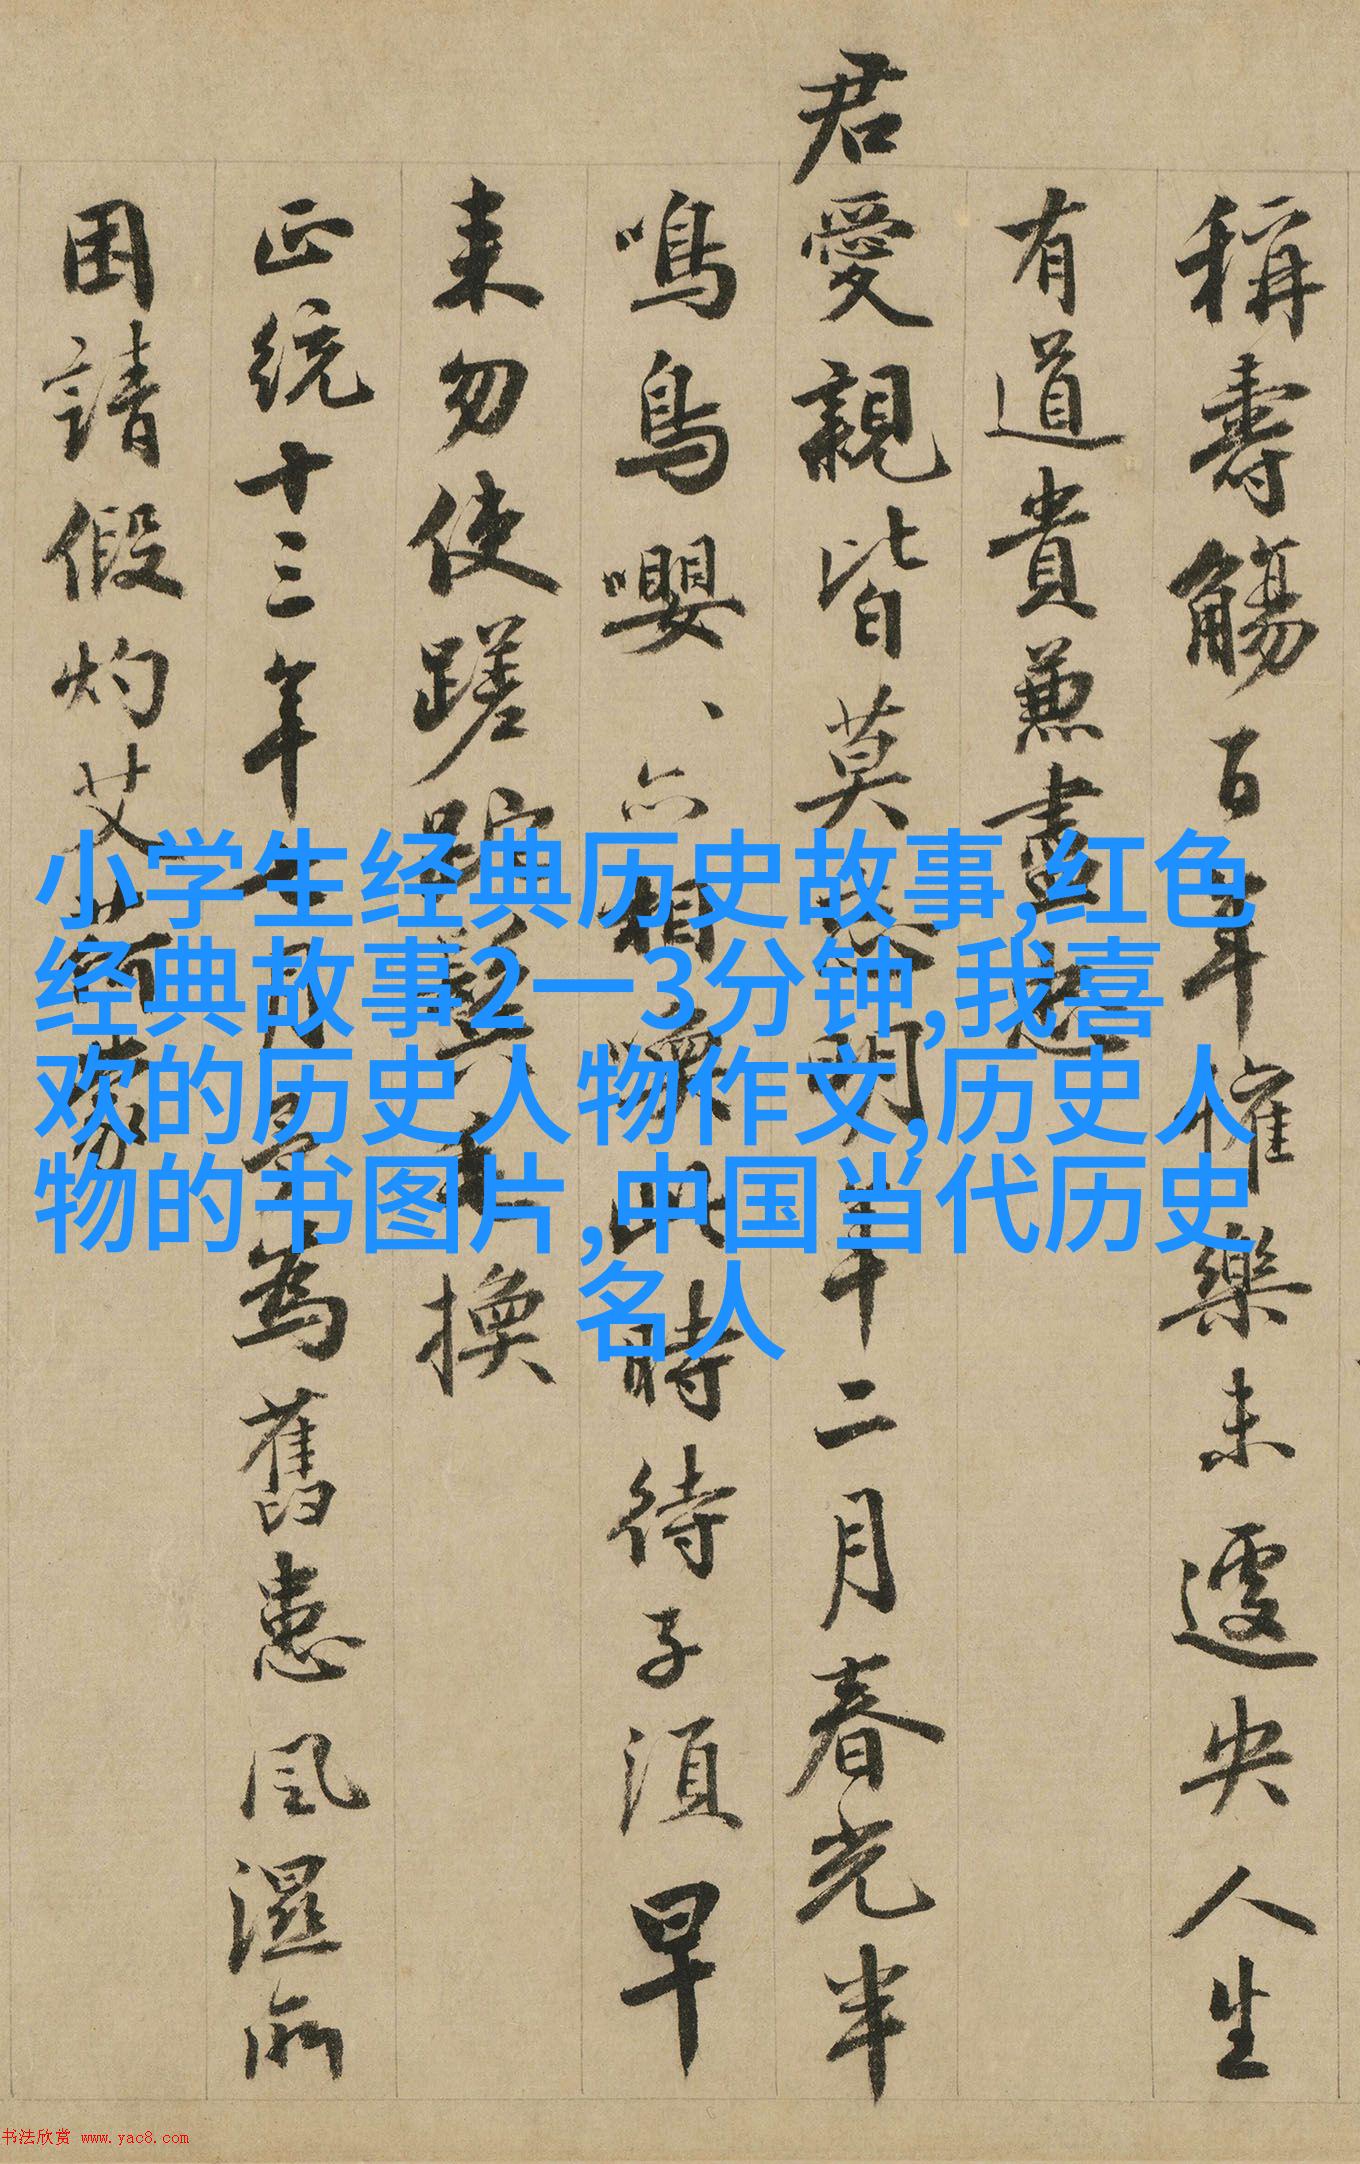 稱壽觴百年懽樂未遽央人生
有道貴兼盡
君愛親皆莫明年二月春光半
鳴鳥嚶、亦相此時待子須早
来勿使蹉跎換
正統十三年月為舊患風濕所
困請假灼艾
小学生经典历史故事,红色
经典故事2一3分钟,我喜
欢的历史人物作文,历史人
物的书图片,中国当代历史
名人
书法欣赏 www.yac8.com